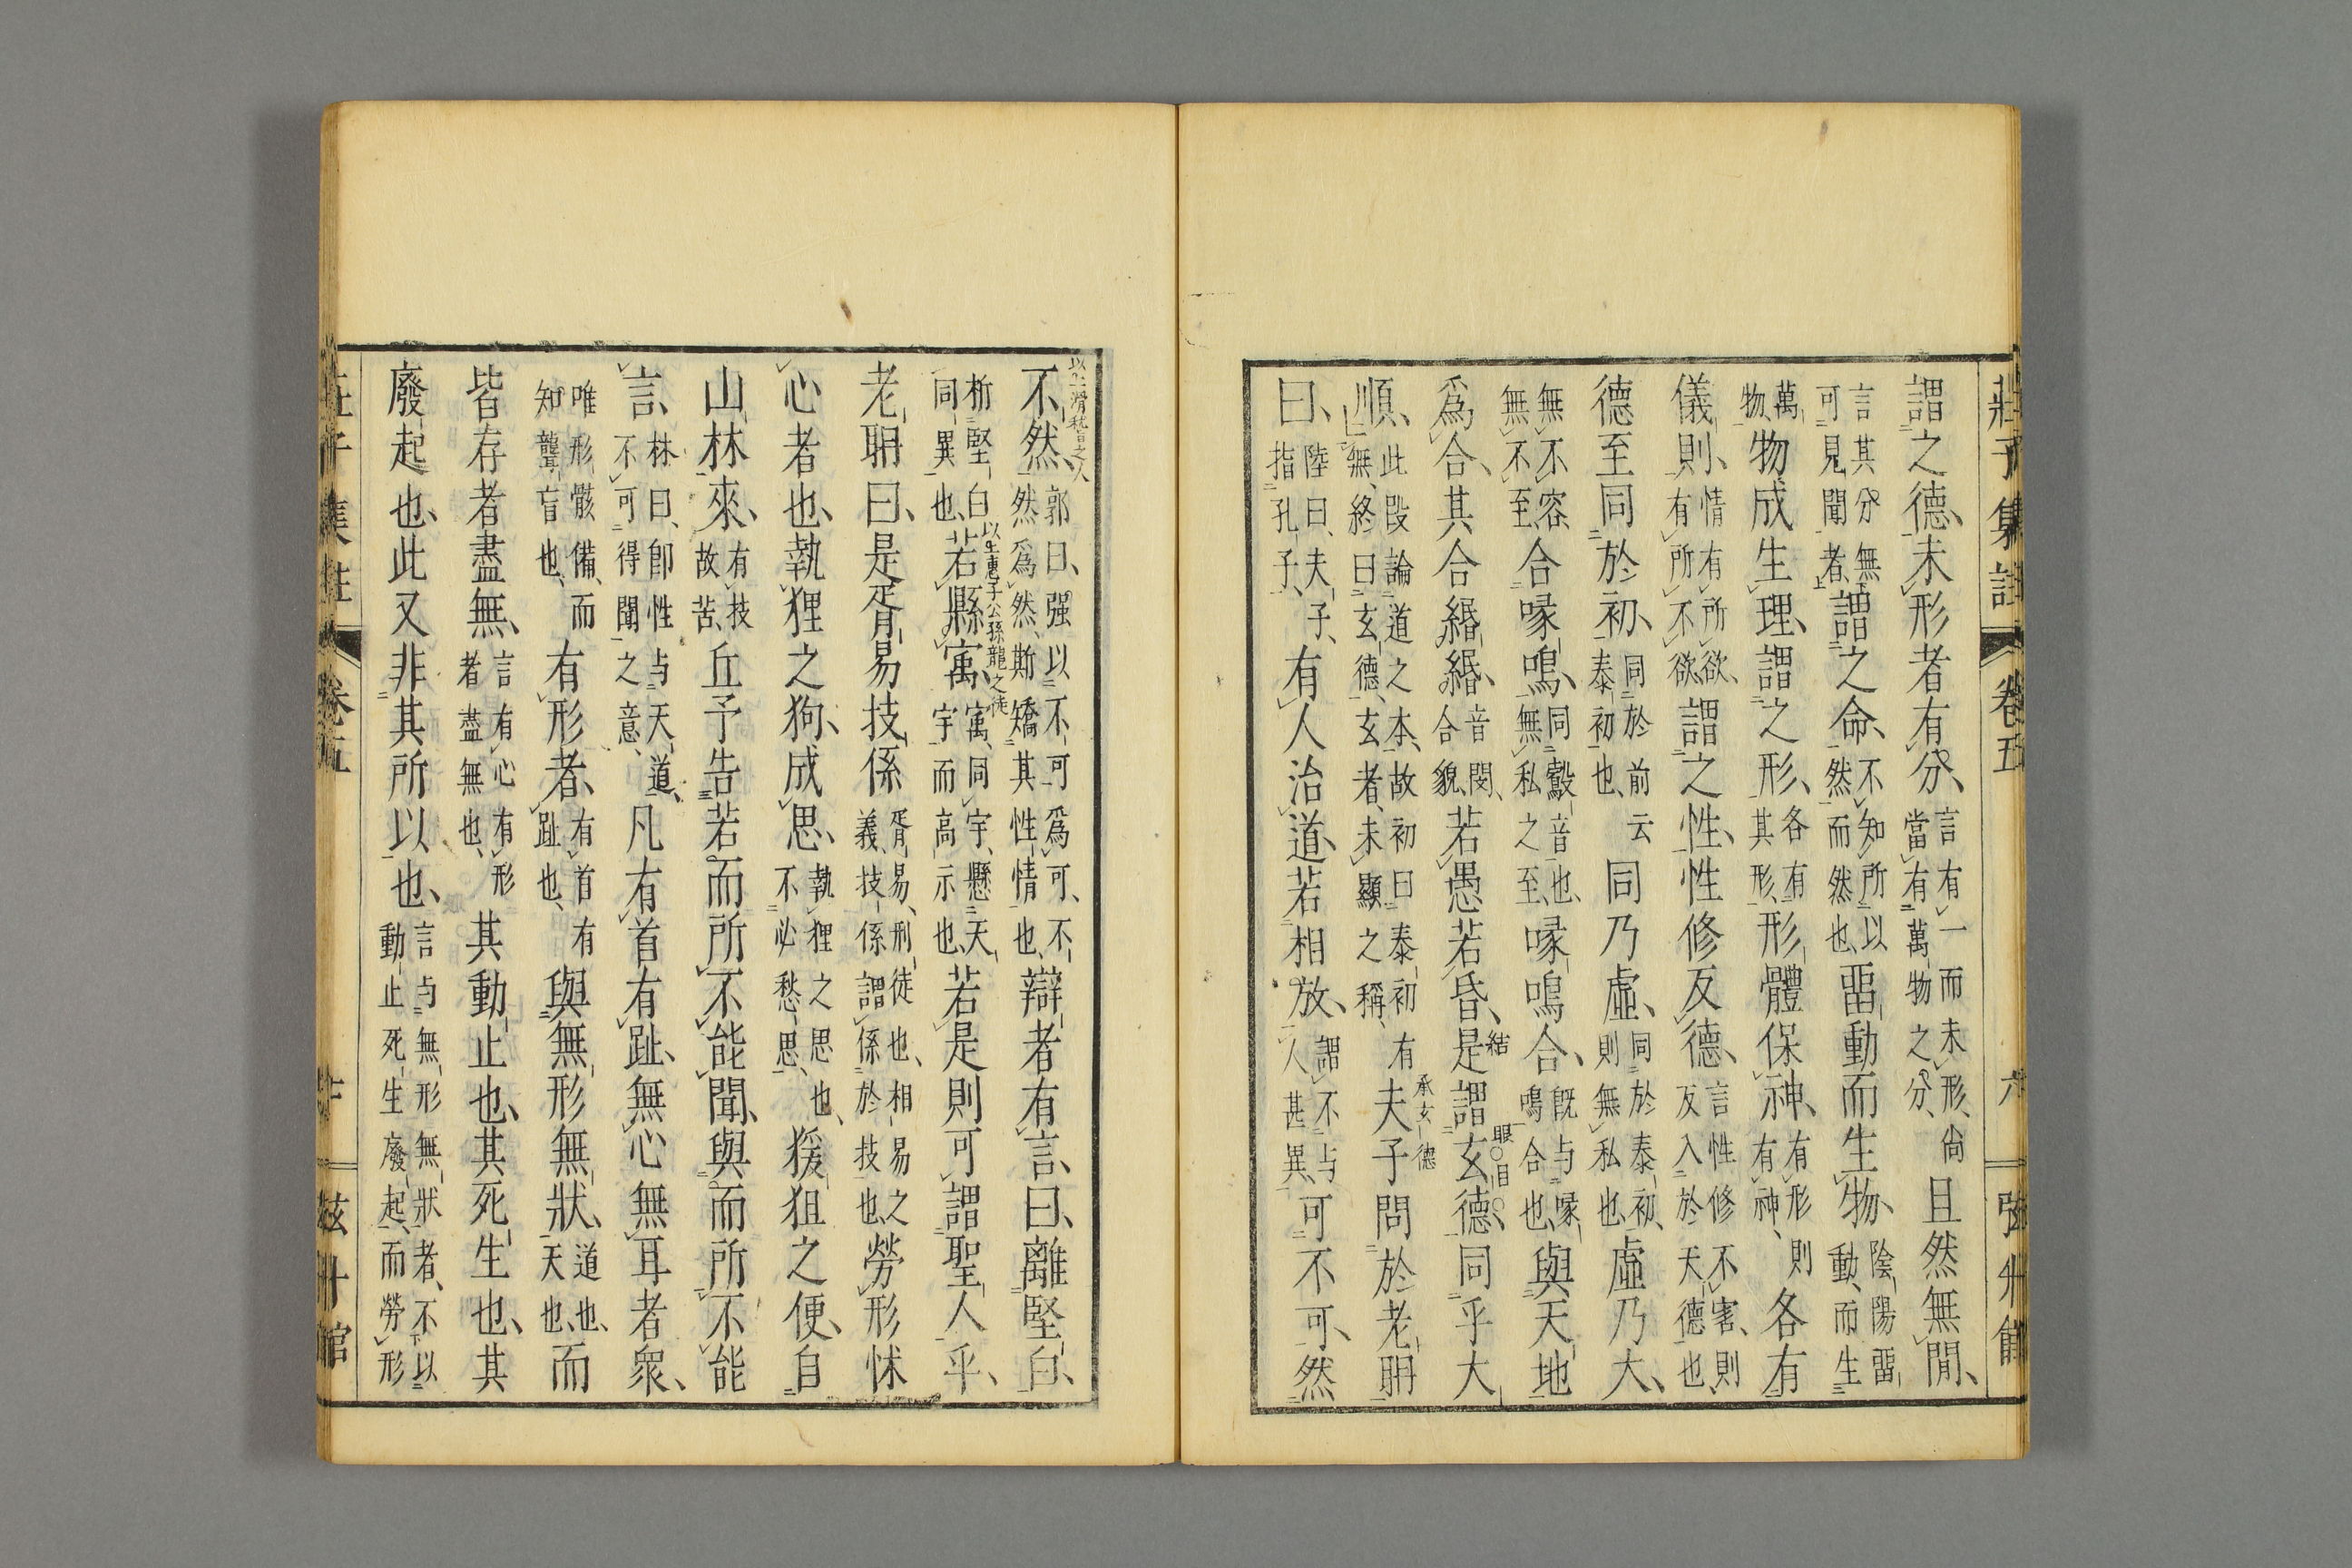 莊子集註 卷五 六 弦升館
謂之德、未形者有分、言有一而未形、尚當有萬物之分、且然無閒、
言其分無可見聞者、謂之命、不知所以然而然也、畱動而生物、陰陽畱動、而生
萬物、物成生理、謂之形、各有其形、形體保神、有形則有神、各有
儀則、情有所欲、有所不欲、謂之性、性修反德、言性修不害、則反入於天德也、
德至同於初、同於前云泰初也、同乃虛、同於泰初、則無私也、虛乃大、
無不容、無不至、合喙鳴、同鷇音也、無私之至、喙鳴合、旣与喙鳴合也、與天地
爲合、其合緡緡、音閔、合貌、若愚若昏、是謂玄德、同乎大
結
眼○目○
順、此段論道之本、故初曰泰初有無、終曰玄德、玄者、未顯之稱、夫子問於老聃
承玄德
曰、陸曰、夫子、指孔子、有人治道、若相放、謂不与人甚異、可不可、然
以上滑稽之人
不然、郭曰、强以不可爲可、不然爲然、斯矯其性情也、辯者有言、曰、離堅白、
析堅白同異也、若縣寓、寓、同宇、懸天宇而高示也、若是則可謂聖人乎、
以上惠子公孫龍之徒
老聃曰、是胥易技係胥易、刑徒也、相易之義、技係謂係於技也、勞形怵
心者也、執狸之狗、成思、執狸之思也、不必愁思、猨狙之便、自
山林來、有技故苦、丘予告若而所不能聞、與而所不能
言、林曰、卽性与天道、不可得聞之意、凡有首有趾、無心無耳者衆、
唯形骸備、而知聾盲也、有形者、有首有趾也、與無形無狀、道也、天也、而
皆存者盡無、言有心有形者盡無也、其動止也、其死生也、其
廢起也、此又非其所以也、言与無形無狀者、不以動止死生廢起、而勞形
莊子集註 卷五 弦升館